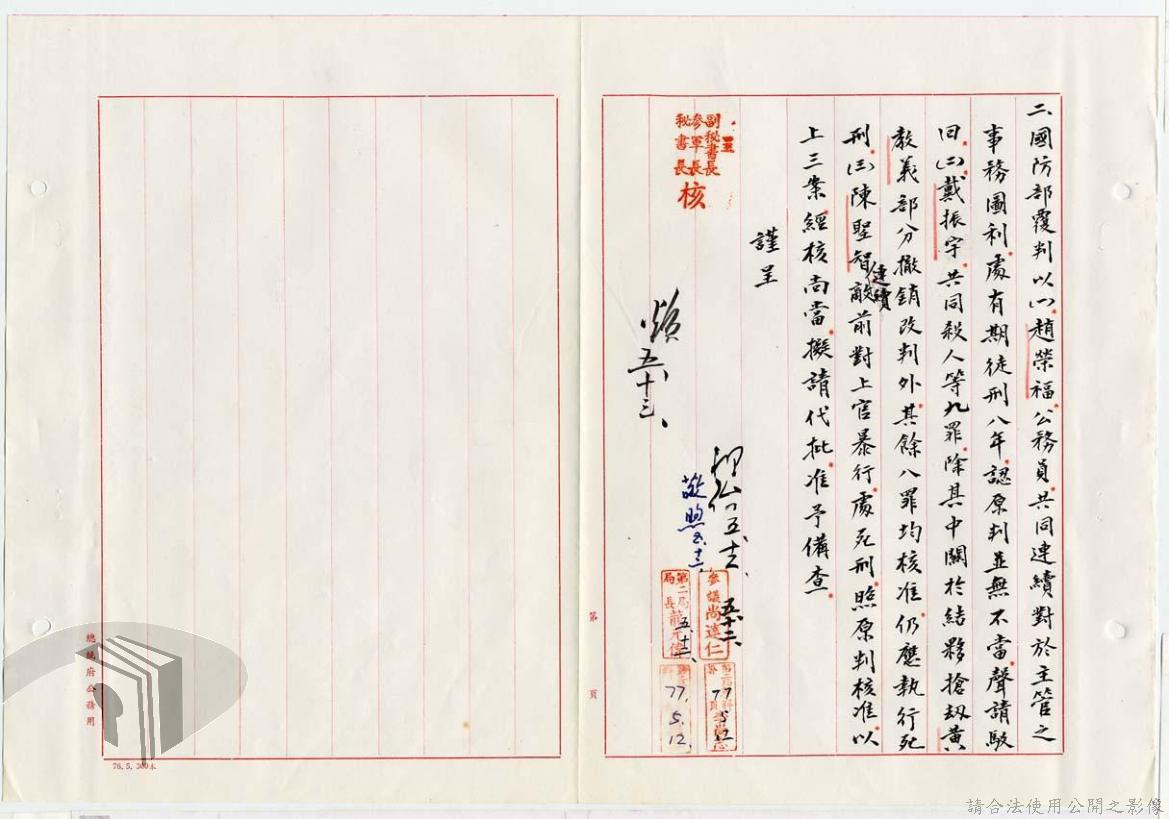 二、國防部覆判以㈠趙榮福公務員共同連續對於主管之
事務圖利處有期徒刑八年認原判並無不當聲請駁
回㈡戴振宇共同殺人等九罪除其中關於結夥搶劫黃
教義部分撤銷改判外其餘八罪均核准仍應執行死
刑㈢陳聖智連續敵前對上官暴行處死刑照原判核准以
上三案經核尚當擬請代批准予備查
謹呈
副秘書長
參軍長
秘書長
核
五、十三、
五、十二、
參議尚達仁
五、十二、
第二局
局長
五、十二、
77.5.12
77.5.12.
第 頁
總統府公務用
76. 5. 300本
請合法使用公開之影像